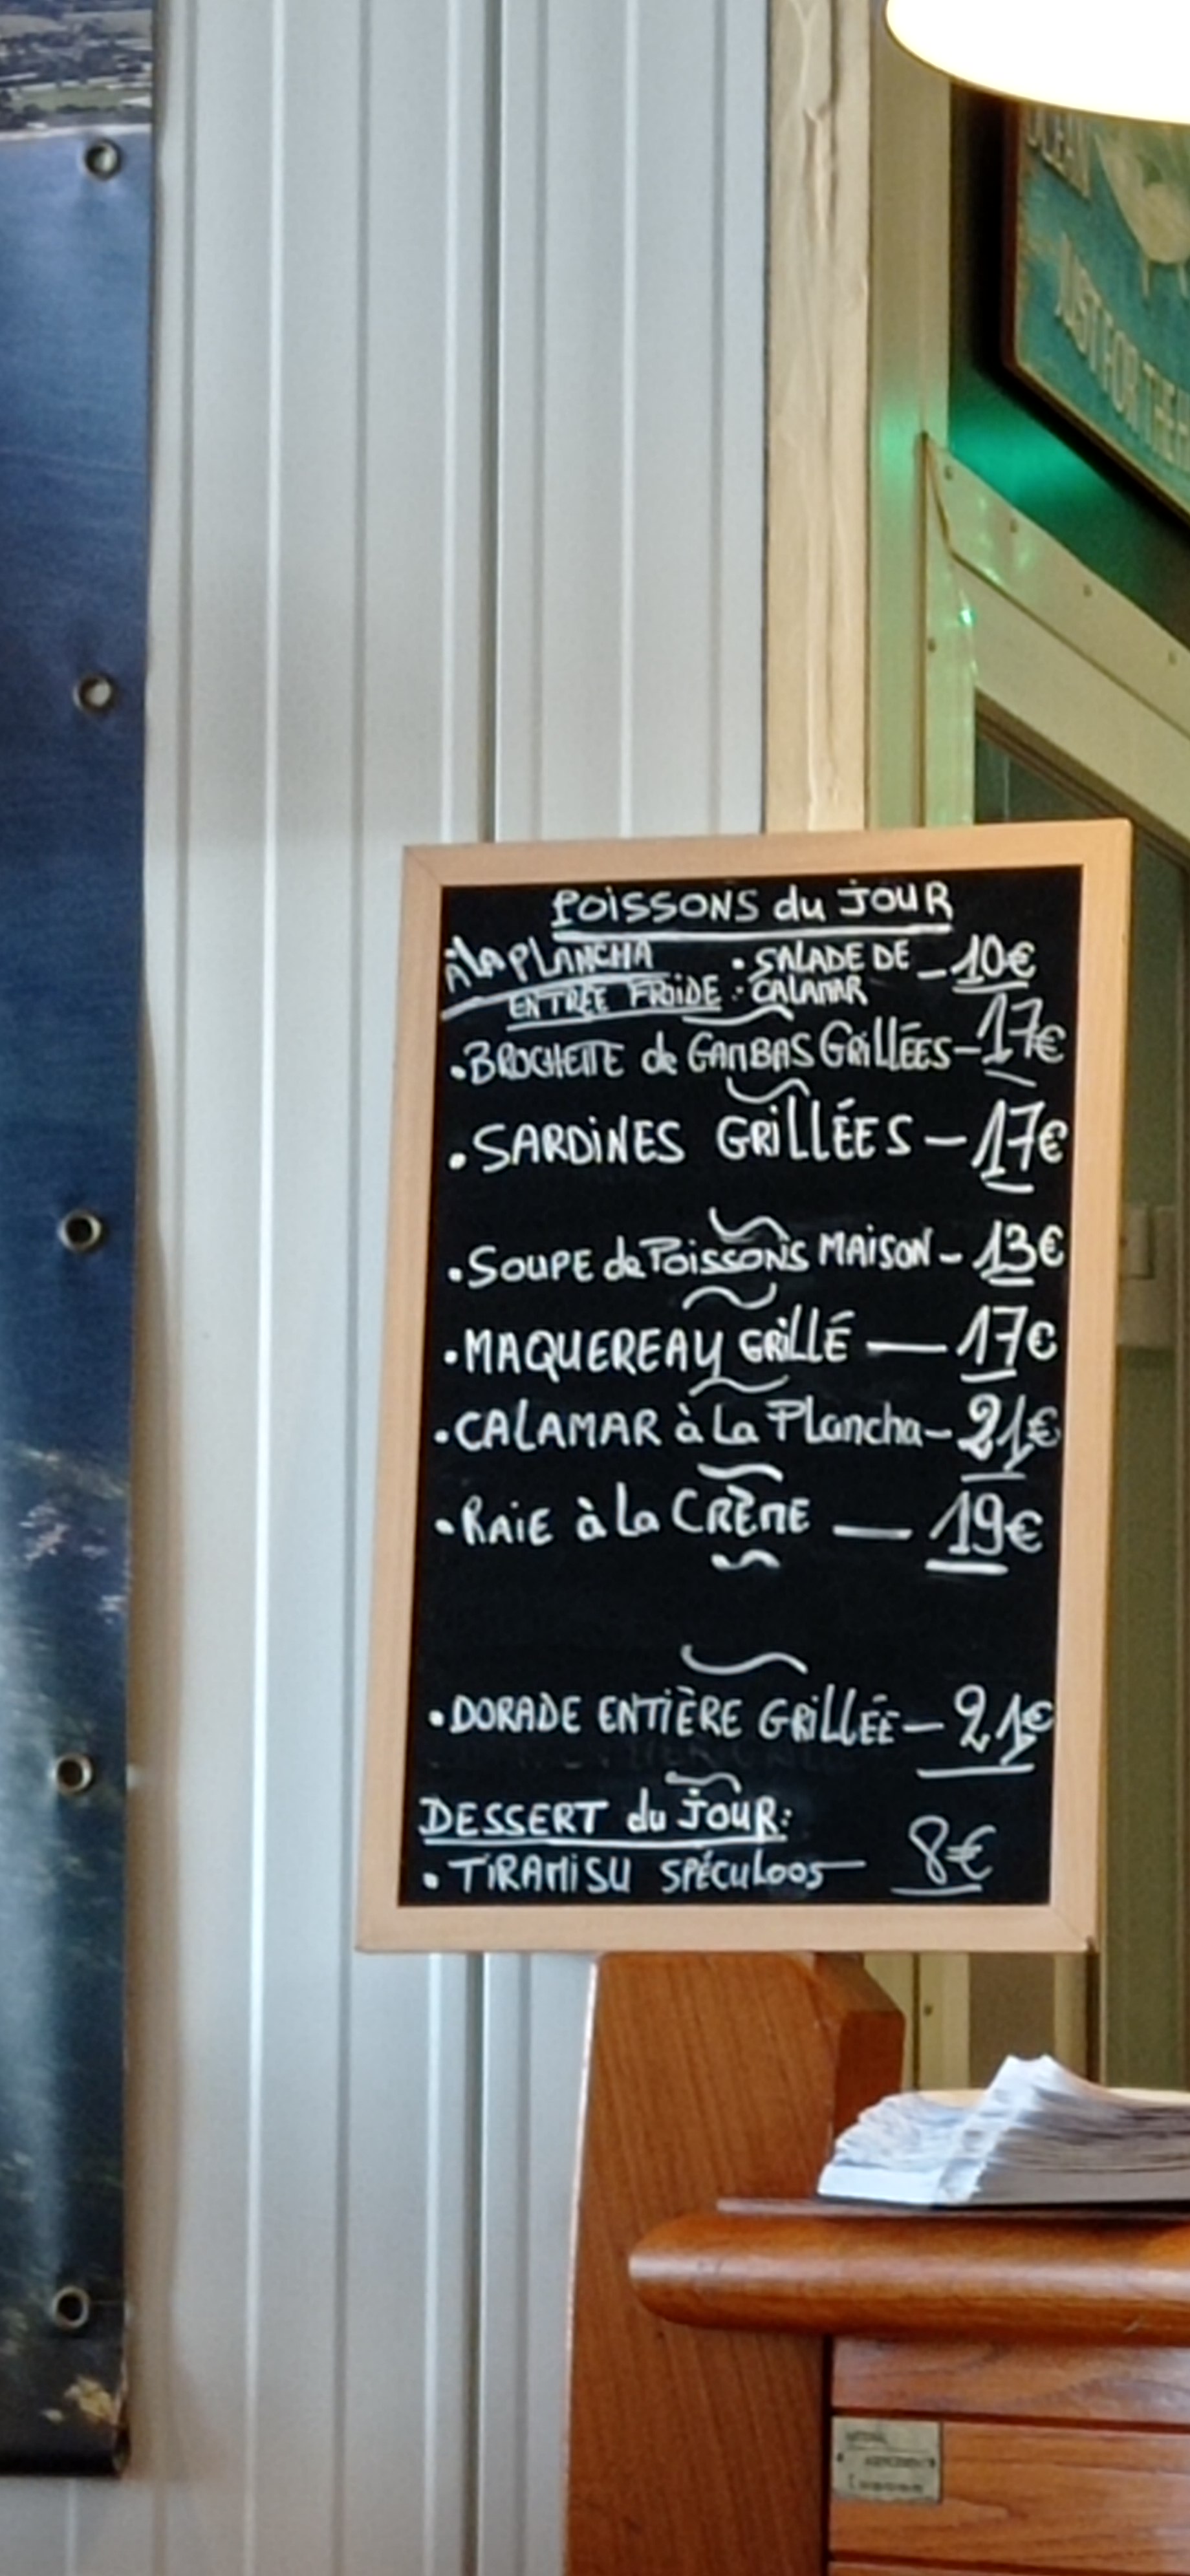 POISSONS du JOUR
À la PLANCHA
• SALADE DE – 10€
ENTRÉE FROIDE : CALAMAR
• BROCHETTE de GAMBAS GRILLÉES – 17€
• SARDINES GRILLÉES – 17€
• SOUPE de Poissons MAISON – 13€
• MAQUEREAU GRILLÉ — 17€
• CALAMAR à La Plancha – 21€
• RAIE à La CRÈME — 19€
• DORADE ENTIÈRE GRILLÉE – 21€
DESSERT du JOUR:
• TIRAMISU SPÉCULOOS – 8€
JUST FOR THE